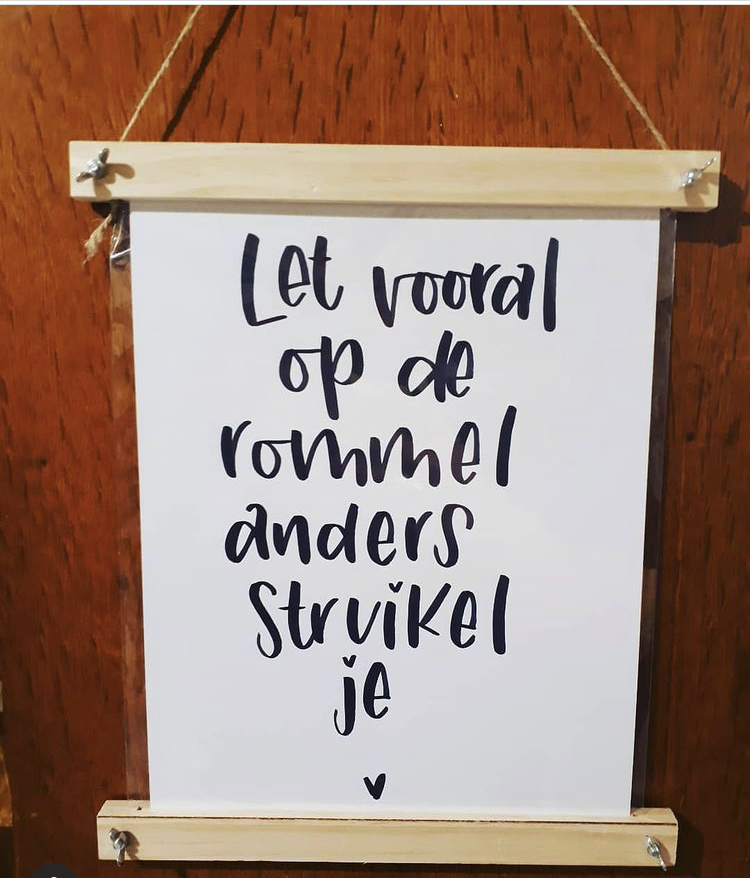 Let vooral
op de
rommel
anders
struikel
je